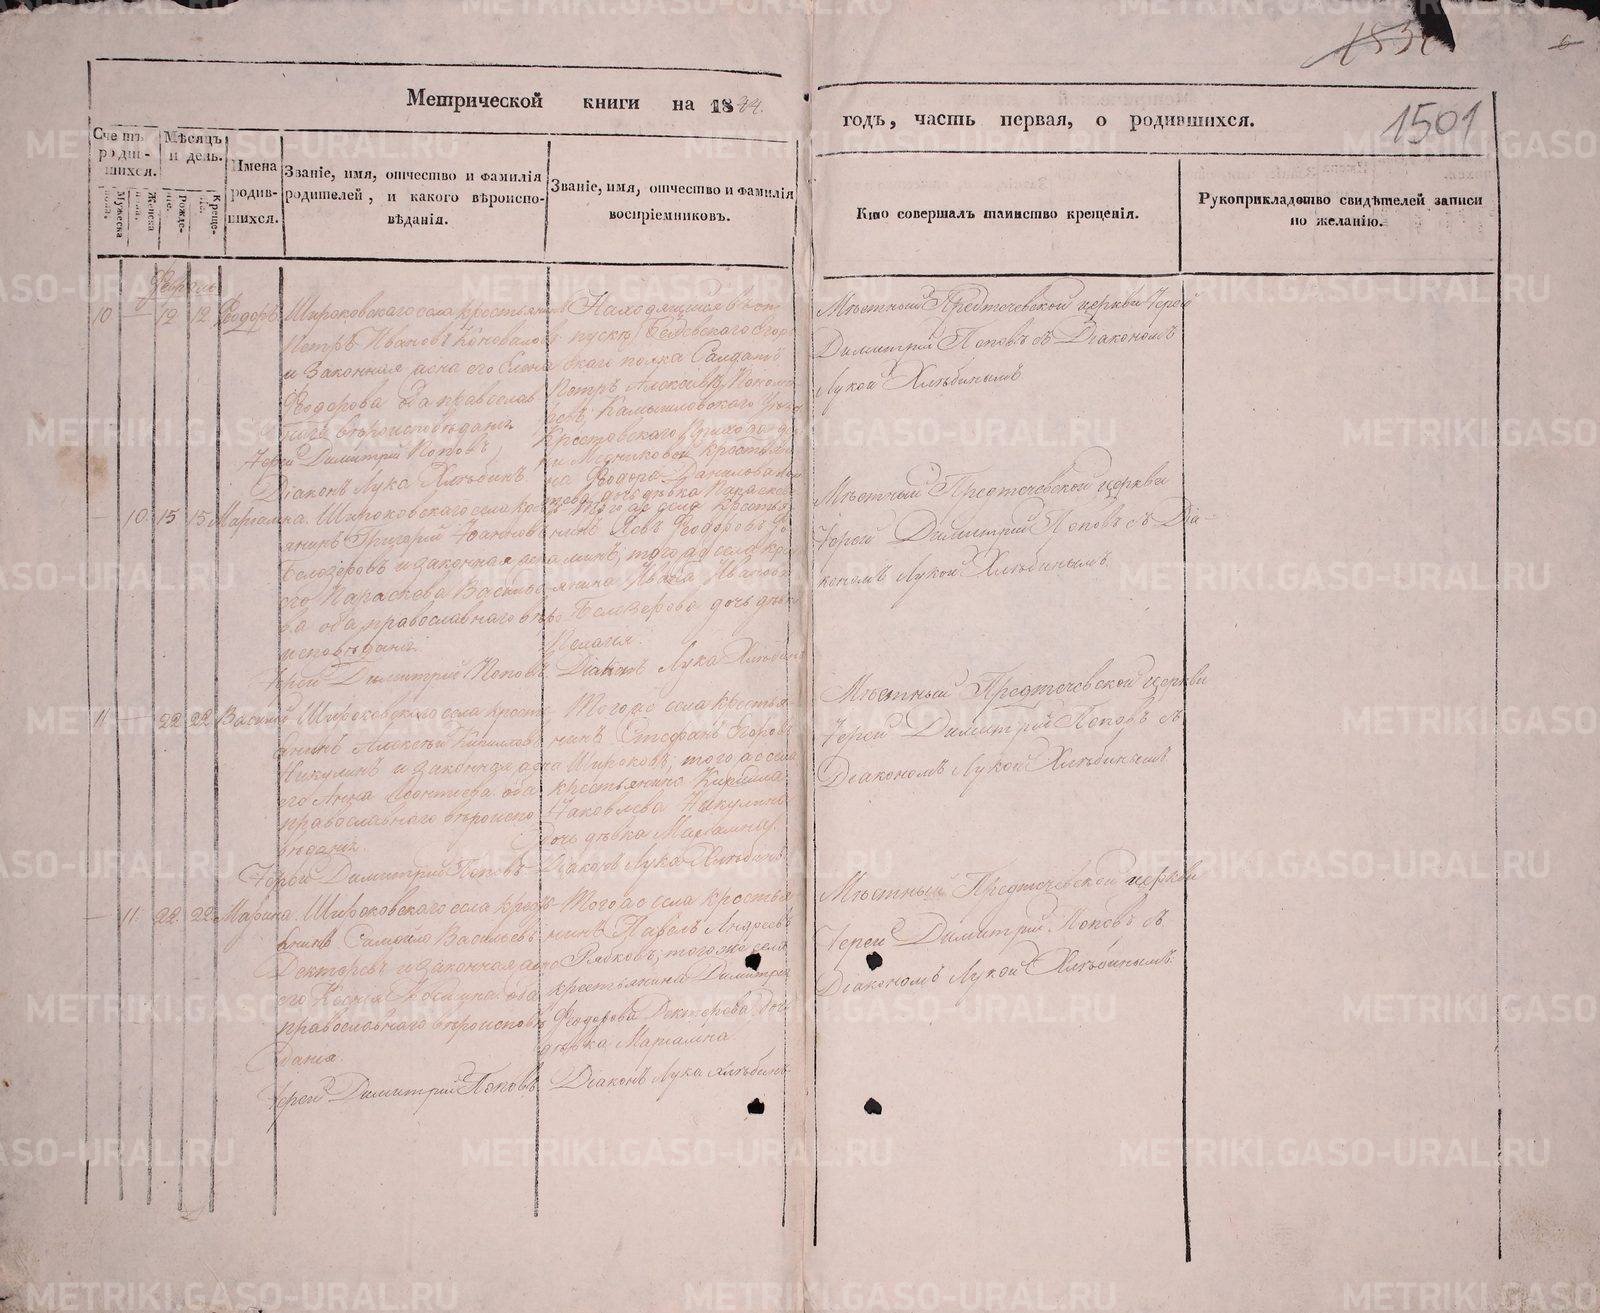 1501
Метрической книги на 1844.
годъ, часть первая, о родившихся.
Счетъ родившихся.
Мужеска пола.
Женска пола.
Мѣсяцъ и день.
Рожденіе.
Крещеніе.
Имена родившихся.
Званіе, имя, отчество и фамилія родителей, и какого вѣроисповѣданія.
Званіе, имя, отчество и фамилія воспріемниковъ.
Кто совершалъ таинство крещенія.
Рукоприкладство свидѣтелей записи по желанію.
Февраль
10 — 12 12 Ѳеодоръ
Широковскаго села крестьянинъ
Петръ Ивановъ Коноваловъ
и законная жена его Елена
Ѳеодорова оба православ
наго вѣроисповѣданія
Іерей Димитрій Поповъ
Діаконъ Лука Хлѣбинъ
Находящійся въ от
пуску
полка Салдатъ
Петръ Алексѣевъ
Камышловскаго
Крестовскаго
Ѳеодора Данилова
дочь дѣвка
Мѣстный Предтечевской церкви Іерей
Димитрій Поповъ съ Діакономъ
Лукой Хлѣбинымъ
— 10 15 15 Маріамна.
Широковскаго села крест
янинъ Григорій Іоанновъ
Белозеровъ и законная жена
его Параскева Василье
ва оба православнаго вѣро
исповѣданія.
Іерей Димитрій Поповъ.
Того же села крестья
нинъ Іовъ Ѳеодоровъ
того же села крест
янина Ивана Иванова
Белозерова дочь дѣвка
Пелагія.
Діаконъ Лука Хлѣбинъ
Мѣстный Предтечевской церкви
Іерей Димитрій Поповъ съ Діа-
кономъ Лукой Хлѣбинымъ.
11 — 22 22 Василій
Широковскаго села кресть
янинъ Алексѣй Кириловъ
Никулинъ и законная жена
его Анна Леонтиева оба
православнаго вѣроиспо
вѣданія.
Іерей Димитрій Поповъ
Того же села крестья
нинъ Стефанъ Егоровъ
Широковъ; того же села
крестьянина Кирилла
Іаковлева Никулина
дочь дѣвка Маріамна.
Діаконъ Лука Хлѣбинъ
Мѣстный Предтечевской церкви
Іерей Димитрій Поповъ съ
Діакономъ Лукой Хлѣбинымъ
— 11. 22 22 Марина.
Широковскаго села кресть
янинъ Самойло Васильевъ
Дектеревъ и законная жена
его Ксенія оба
православнаго вѣроисповѣ
данія.
Іерей Димитрій Поповъ.
Того же села крестья
нинъ Павелъ Андреевъ
Рябковъ; того же села
крестьянина Димитрія
Ѳеодорова Дектерева дочь
дѣвка Маріамна.
Діаконъ Лука Хлѣбинъ
Мѣстный Предтечевской церкви
Іерей Димитрій Поповъ съ
Діакономъ Лукой Хлѣбинымъ.
METRIKI.GASO-URAL.RU